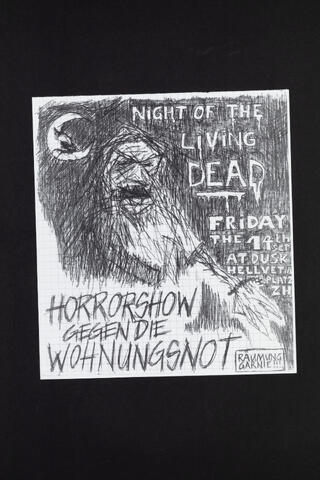 NIGHT OF THE
LIVING
DEAD
FRIDAY
THE 14TH
AT DUSK
HELLVETIA
PLATZ
ZH
HORRORSHOW
GEGEN DIE
WOHNUNGSNOT
RÄUMUNG
GARNIE!!!